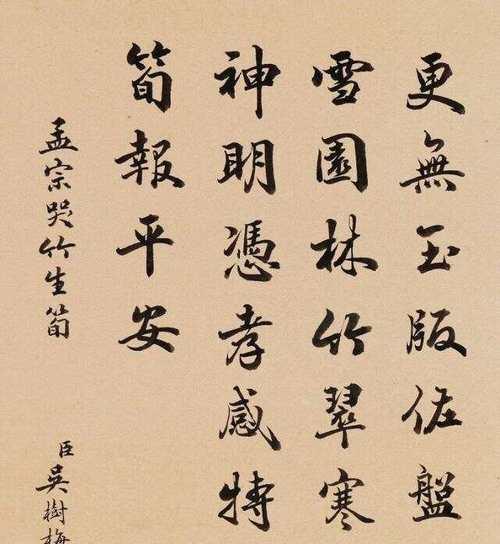 更無玉版佐盤
雪園林竹翠寒
神明憑孝感特
筍報平安
孟宗哭竹生筍
臣吳樹梅